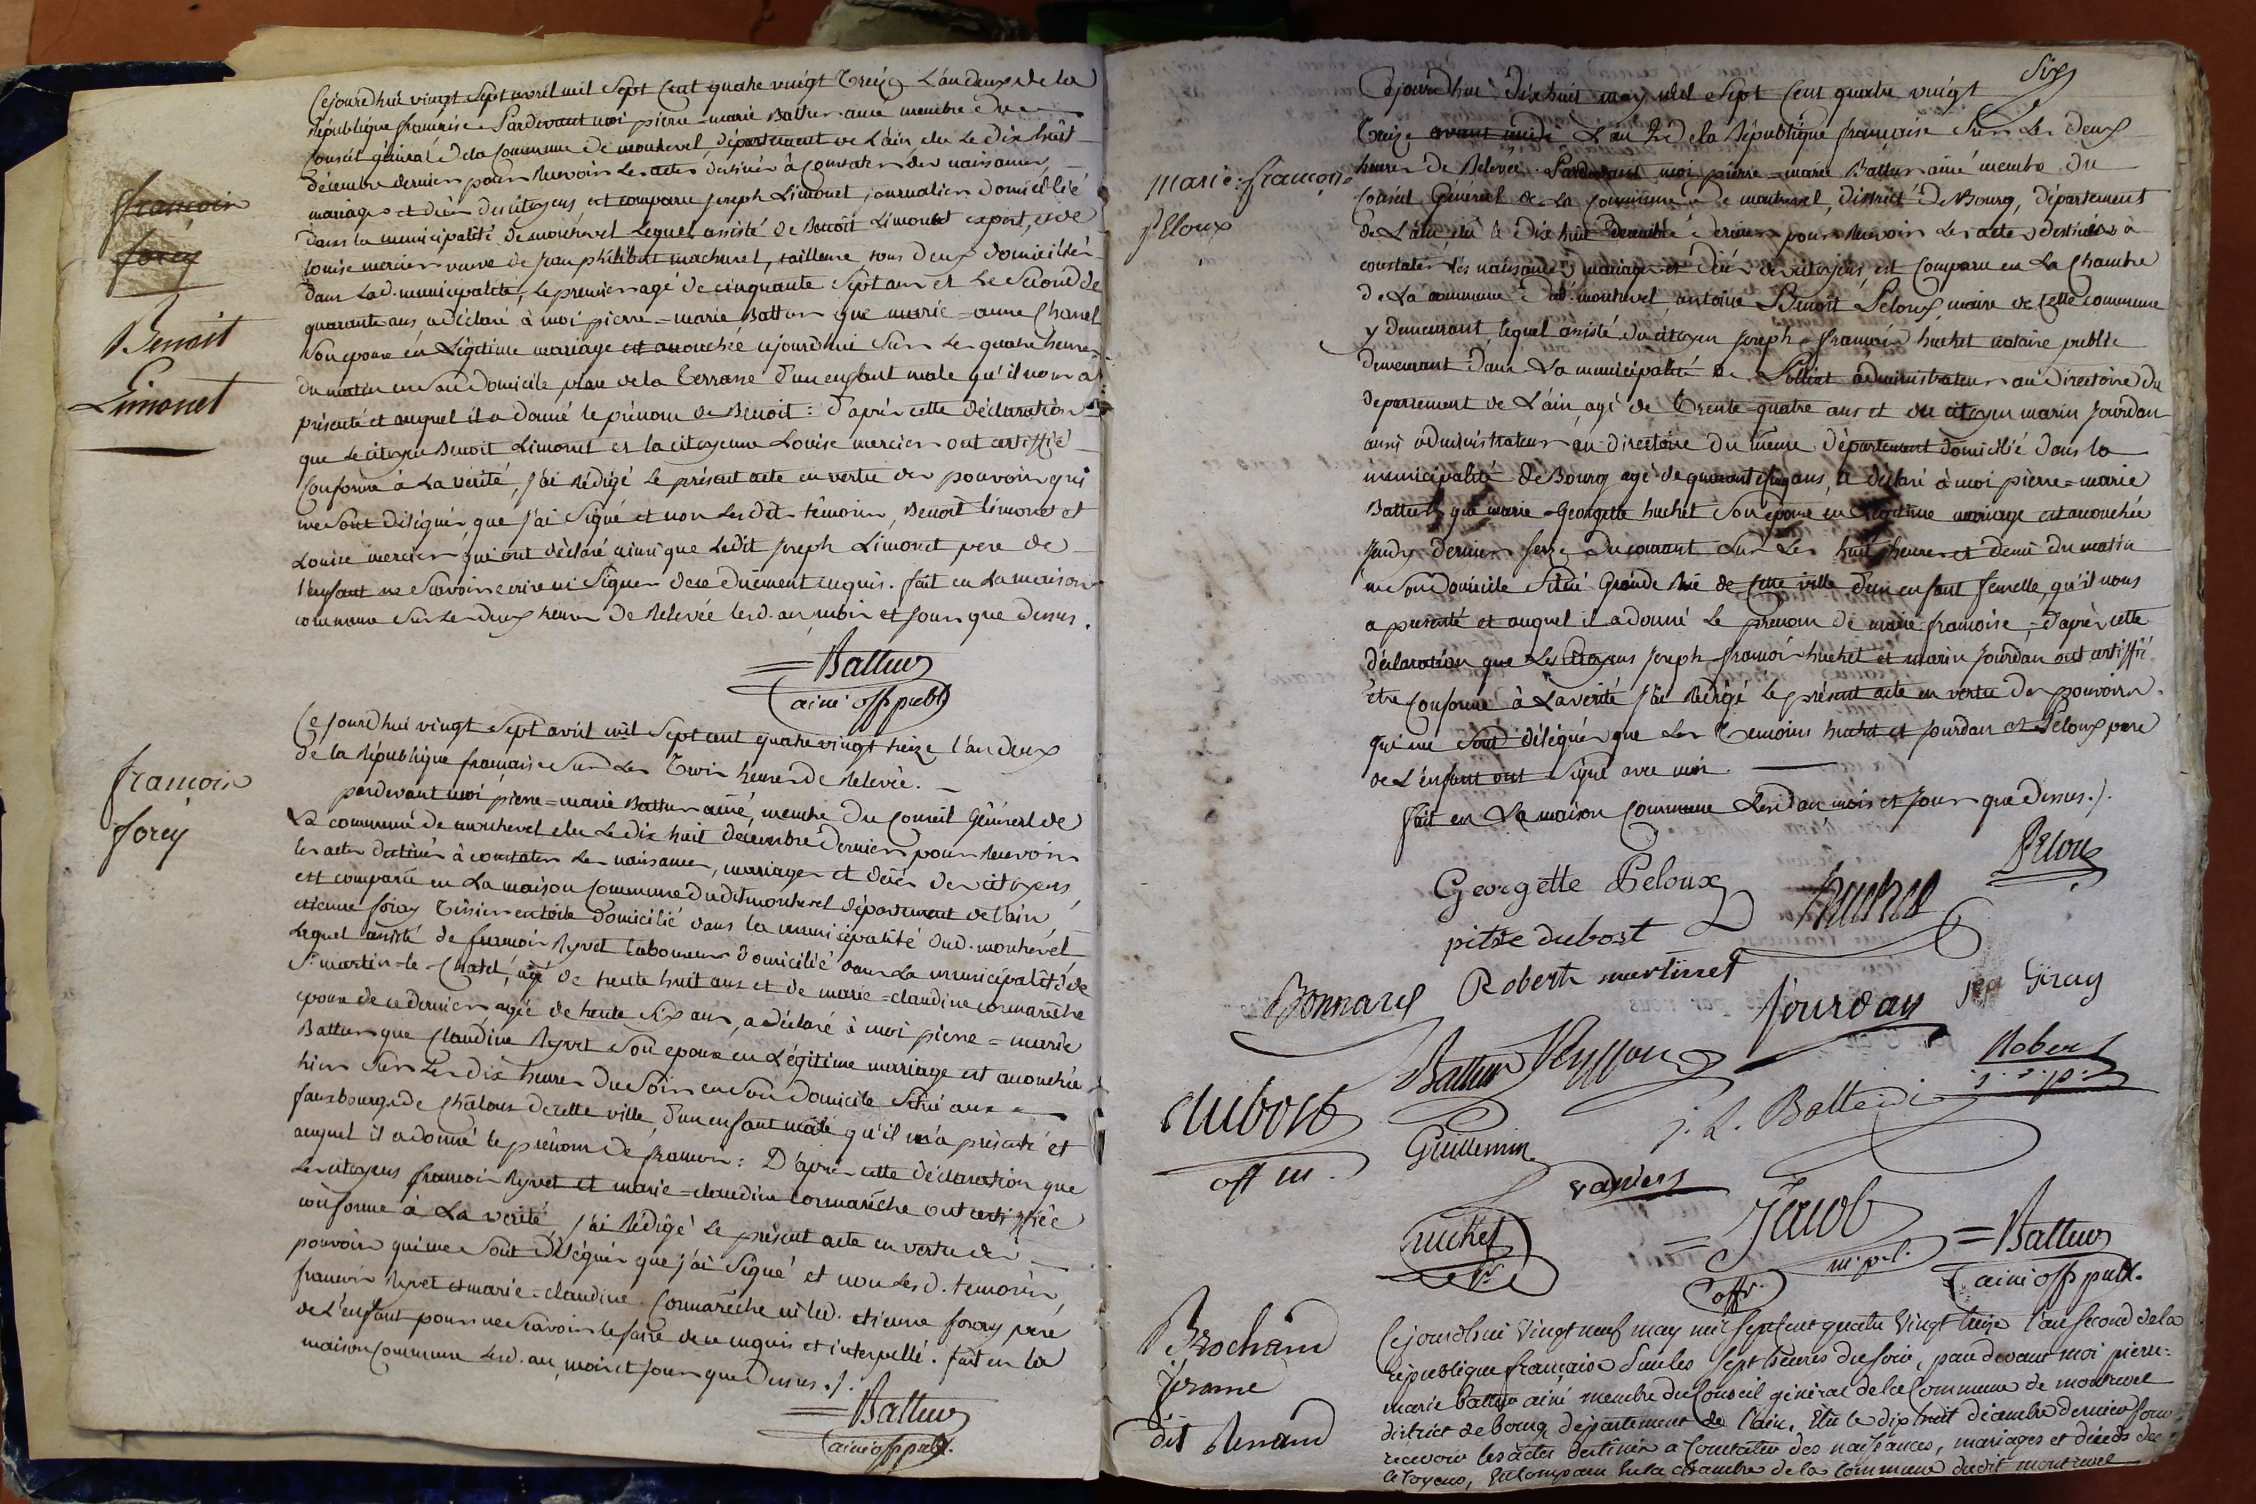 Cejourdhui vingt Sept avril mil Sept Cent quatre vingt Treize L'an deux de la
République française Pardevant moi pierre=marie Battur ainé membre du
Conseil général de la Commune de montrevel département de L'ain élu Le dix huit
décembre dernier pour Recevoir Les actes destinés à Constater des naissances,
mariages et décès des citoyens est comparu joseph Limonet journalier domicilié
dans la municipalité de montrevel Lequel assisté de Benoit Limonet et de
Louise mercier veuve de jean philibert machurel, tailleuse tous deux domiciliés
dans Lad. municipalité, Le premier agé de cinquante Sept ans et La Seconde de
quarante ans a déclaré à moi pierre=marie Battur que marie=anne Chanel
Son epouse en Légitime mariage est accouchée cejourdhui Sur Les quatre heures
du matin en Son domicile place de la Terrasse d'un enfant male qu'il nous a
présenté et auquel il a donné le prénom de Benoit : d'après cette déclaration
que Le citoyen Benoit Limonet et la citoyenne Louise mercier ont certiffié
Conforme à La vérité, j'ai Rédigé Le présent acte en vertu des pouvoirs qui
me Sont délégués que j'ai Signé et non Lesdits témoins, Benoit Limonet et
Louise mercier qui ont déclaré ainsi que Ledit joseph Limonet pere de
l'enfant ne Savoir ecrire ni Signer de ce duëment enquis. fait en La maison
commune Sur Les deux heures de Relevée Lesd. an, mois et jour que dessus.
= Battur
ainé off publ
françois
forey
Benoit
Limonet
Cejourdhui vingt Sept avril mil Sept cent quatre vingt treize l'an deux
de la République française Sur Les Trois heures de Relevée.
pardevant moi pierre=marie Battur ainé, membre du Conseil Général de
La commune de montrevel élu Le dix huit décembre dernier pour Recevoir
les actes destinés à constater Les naissances, mariages et décès des citoyens,
est comparu en La maison Commune dudit montrevel département de l'ain,
etienne forey Tissier en toile domicilié dans la municipalité dud. montrevel
Lequel assisté de françois Ryvet Laboureur domicilié dans La municipalité de
St martin-le-Chatel, agé de trente huit ans et de marie=claudine Cormarêche
epouse de ce dernier agée de trente Six ans, a déclaré à moi pierre=marie
Battur que Claudine Ryvet Son epouse en Légitime mariage est accouchée
hier Sur Les dix heures du Soir en Son domicile Situé aux
fauxbourgs de Châlons de cette ville, d'un enfant mâle qu'il m'a présenté et
auquel il a donné le prénom de françois : D'après cette déclaration que
Les citoyens françois Ryvet et marie=claudine Cormarêche ont certiffiée
conforme à La verité, j'ai Rédigé Le présent acte en vertu des
pouvoirs qui me Sont délégués que j'ai Signé et non Lesd. temoins,
françois Ryvet et marie=claudine Cormarêche ni led. etienne forey père
de L'enfant pour ne Savoir le faire de ce enquis et interpellé. fait en la
maison Commune Lesd. an, mois et jour que Dessus ./.
= Battur
ainé off publ.
françois
forey
Six
Cejourdhui dix huit may mil Sept Cent quatre vingt
Treize avant midi L'an 2e de la République française Sur Les deux
heures de Relevée. Pardevant moi pierre=marie Battur ainé membre du
Conseil Général de La Commune de montrevel, district de Bourg, département
de L'ain, élu le dix huit Décembre dernier pour Recevoir Les actes destinés à
constater les naissances, mariages et décès des citoyens est Comparu en La Chambre
de La commune dud. montrevel antoine Benoit Peloux, maire de Cette commune
y demeurant, lequel assisté du citoyen joseph françois huchet notaire public
demeurant dans La municipalité de Polliat administrateur au directoire du
departement de L'ain, agé de Trente-quatre ans et du citoyen marin jourdan
aussi administrateur au directoire du même département domicilié dans la
municipalité de Bourg agé de quarante ans, a déclaré à moi pierre=marie
Battur que marie-Georgette huchet Son épouse en Légitime mariage est accouchée
jeudy dernier Seize du courant Sur Les huit heures et demi du matin
en Son domicile Situé Grande Rüe de Cette ville d'un enfant femelle, qu'il nous
a presenté et auquel il a donné Le prenom de marie-françoise, d'après cette
déclaration que Les citoyens joseph françois huchet et marin jourdan ont certiffié
être Conforme à La vérité j'ai Rédigé Le présent acte en vertu des pouvoirs
qui me Sont délégués que Les Temoins huchet et jourdan et Peloux pere
de L'enfant ont Signé avec moi
fait en La maison Commune Lesd an, mois et jour que Dessus ./.
Marie-françoise
Peloux
Peloux
Georgette Peloux
huchet
pitre dubost
Bonnard
Robert martinet
Jourdan
Battur
Veyssou
Robert
dubost
off m.
Guillemin
j. L.
Jacob
off.
m. pl.
huchet
= Battur
ainé off publ.
Brochand
jérome
dit Renaud
Cejourdhui Vingt neuf may mil Sept Cent quatre Vingt treize l'an Second de la
république française Sur les Sept heures du soir, pardevant moi pierre-
marie battur ainé membre du Conseil général de la Commune de montrevel
district de bourg département de l'ain, Elû le dix huit décembre dernier pour
recevoir les actes destinés a Constater des naissances, mariages et décès des
Citoyens, Est Comparu En la chambre de la Commune dudit montrevel